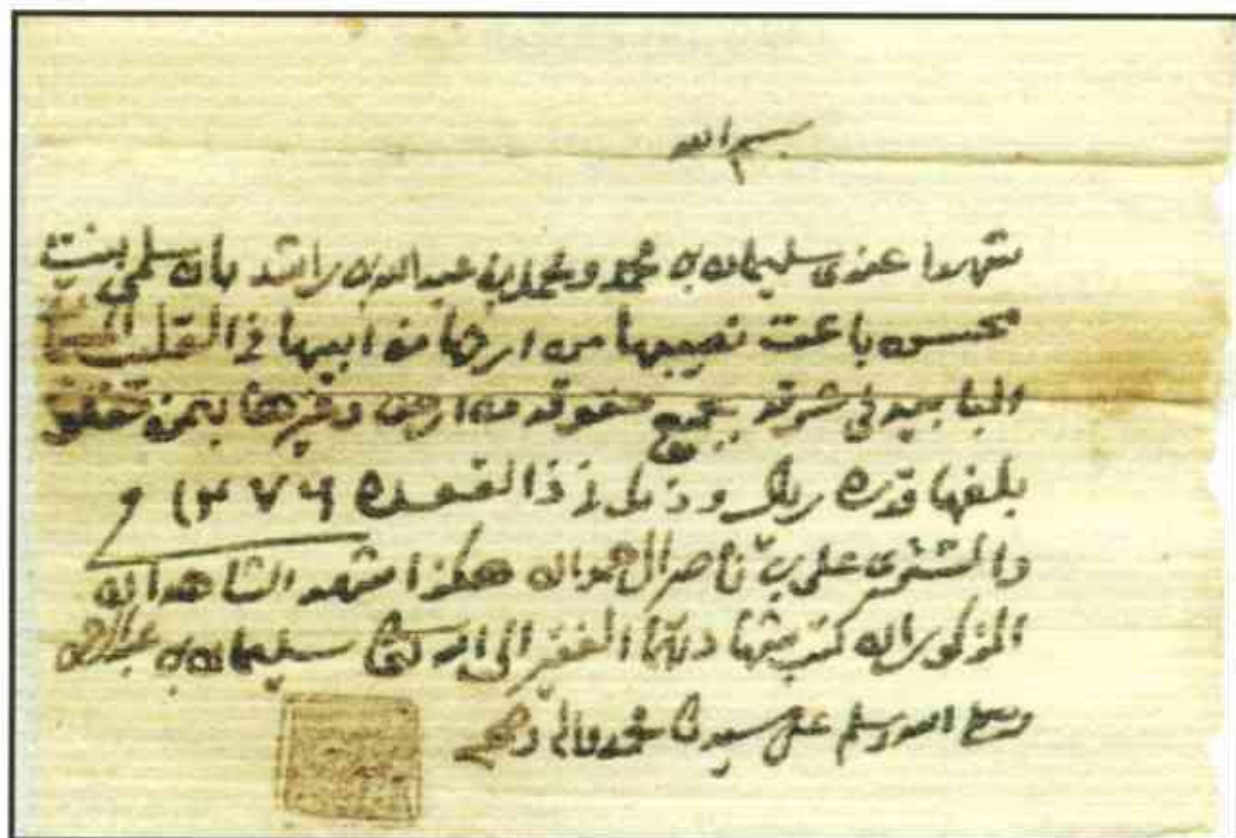 بسم الله
شهدا عندي سليمان بن محمد ومحمد بن عبدالله بن راشد بان سلمى بنت
محسن باعت نصيبها من ارثها من ابيها في القليب
في شرقه بجميع حقوقه من ارض وغيرها بثمن
بلغها قدره ريال وذلك في ذا القعده ١٣٧٦
والمشتري علي بن ناصر ال هكذا شهد الشاهدان
المذكوران كتب شهادتهما الفقير الى الله سليمان بن عبدالرحمن
وصلى الله وسلم على سيدنا محمد واله وصحبه